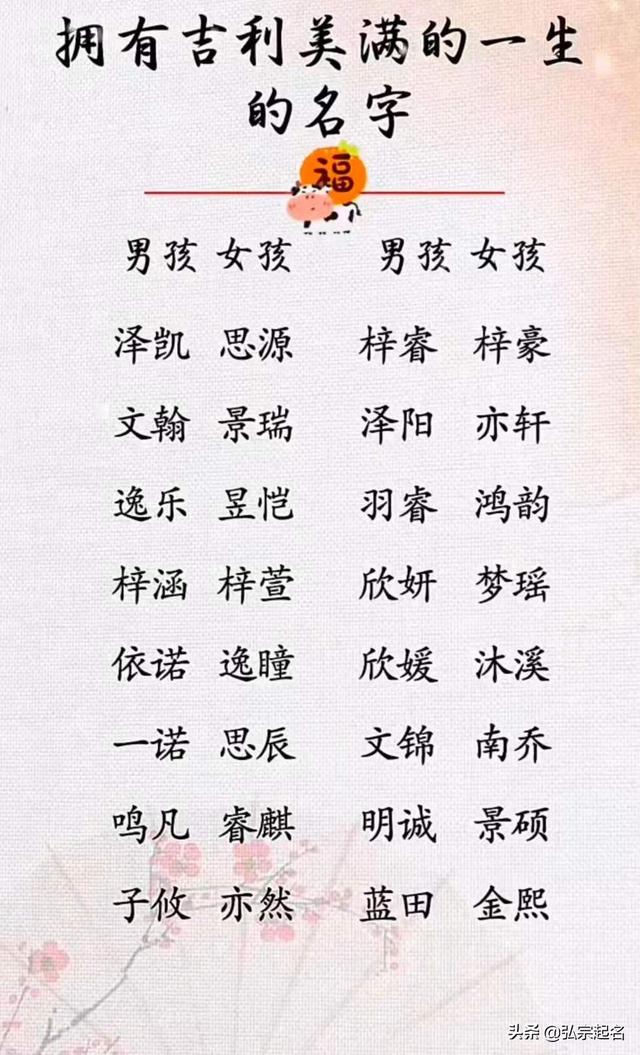 拥有吉利美满的一生
的名字
福
男孩 女孩 男孩 女孩
泽凯 思源 梓睿 梓豪
文翰 景瑞 泽阳 亦轩
逸乐 昱恺 羽睿 鸿韵
梓涵 梓萱 欣妍 梦瑶
依诺 逸瞳 欣媛 沐溪
一诺 思辰 文锦 南乔
鸣凡 睿麒 明诚 景硕
子攸 亦然 蓝田 金熙
头条 @弘宗起名